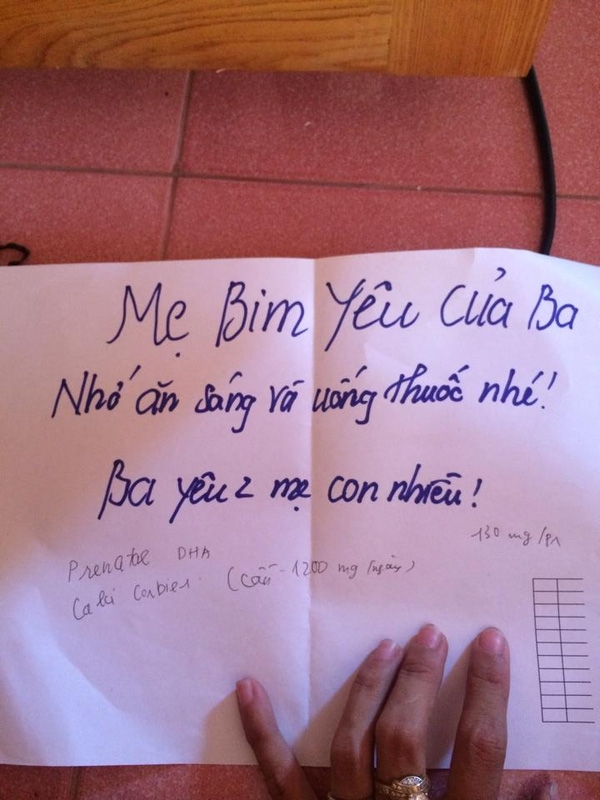 Mẹ Bim Yêu Của Ba
Nhớ ăn sáng và uống thuốc nhé!
Ba yêu 2 mẹ con nhiều!
130 mg/
Prenatal DHA
Calci Corbiere (cần 1200 mg/ngày)